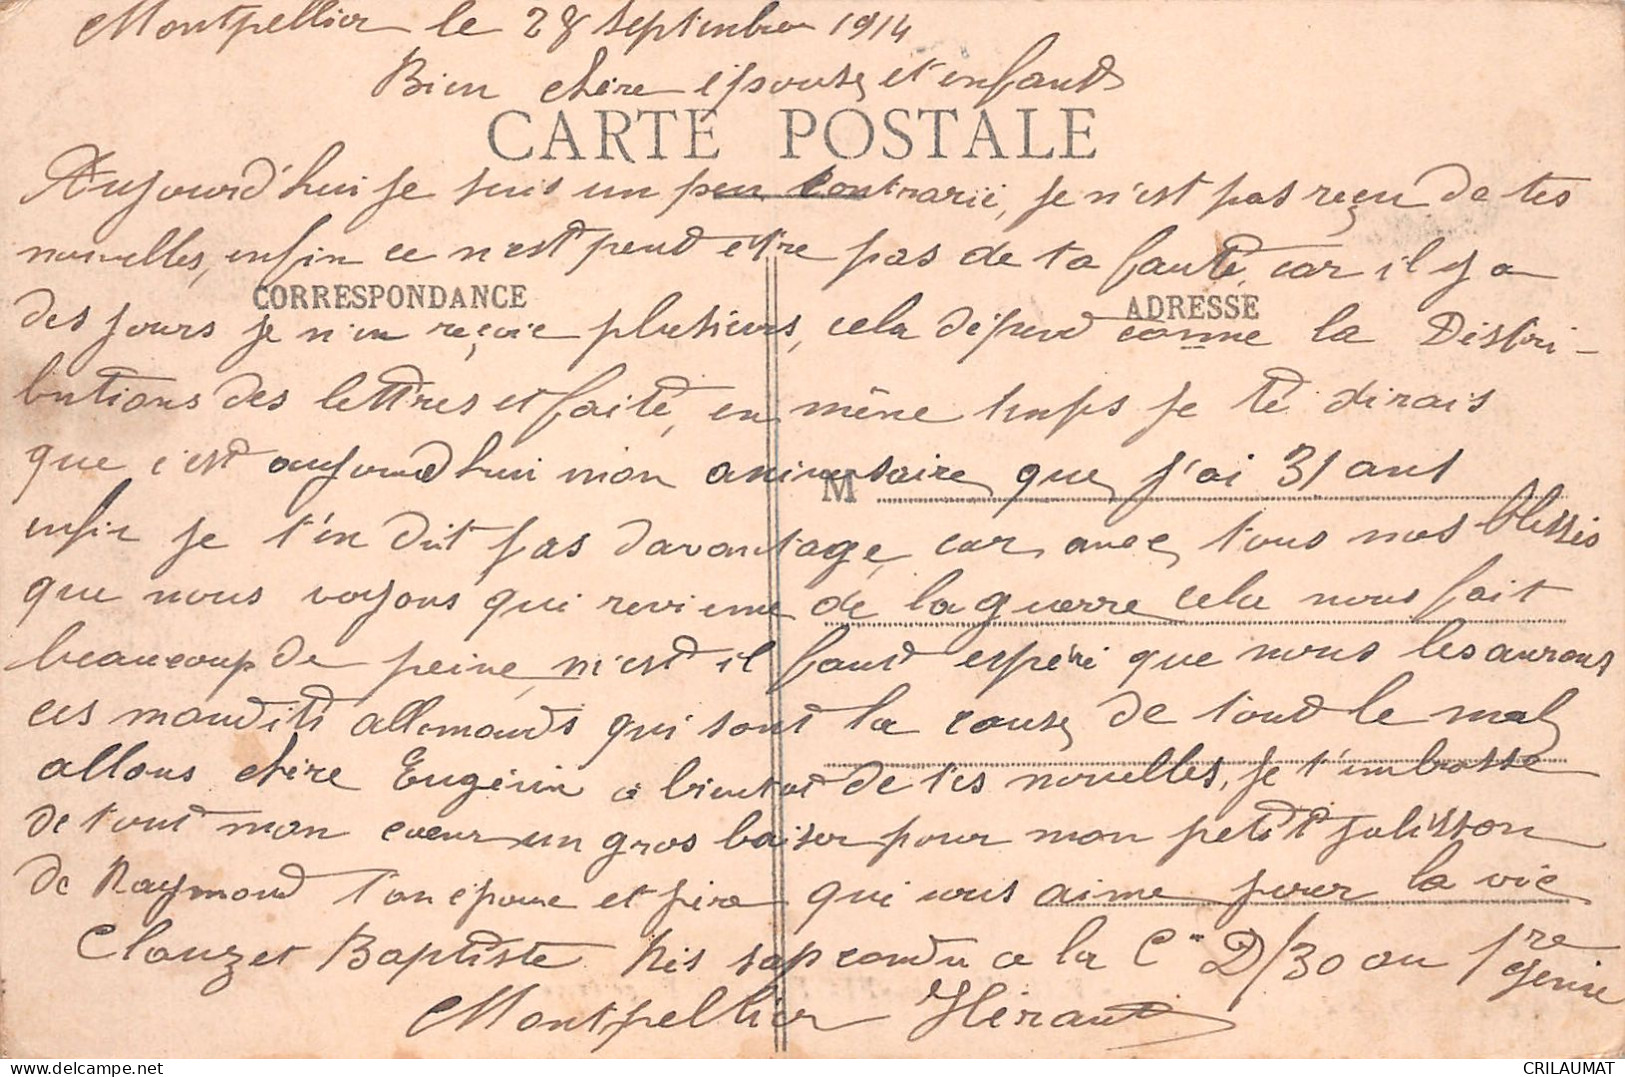 Montpellier le 28 Septembre 1914
Bien chère épouse et enfants
CARTE POSTALE
Aujourd'hui je suis un peu contrarié, je n'est pas reçu de tes
nouvelles, enfin ce n'est peut etre pas de ta faute, car il y a
CORRESPONDANCE
ADRESSE
des jours je n'en reçoie plusieurs, cela dépend comme la Distri-
butions des lettres et faite, en même temps je te dirais
que c'est aujourdhui mon aniversaire que j'ai 31 ans
M
enfin je t'en dit pas davantage, car avec tous nos blessés
que nous voyons qui revienne de la guerre cela nous fait
beaucoup de peine, n'est il faut espéré que nous les aurons
ces maudits allemands qui sont la cause de tout le mal
allons chère Eugénie a bientot de tes nouvelles, je t'embrasse
de tout mon cœur un gros baiser pour mon petit polisson
de Raymond ton époux et père qui vous aime pour la vie
Clauzet Baptiste sap conду a la Cie D/30 au 1re Génie
Montpellier Hérault
CRILAUMAT